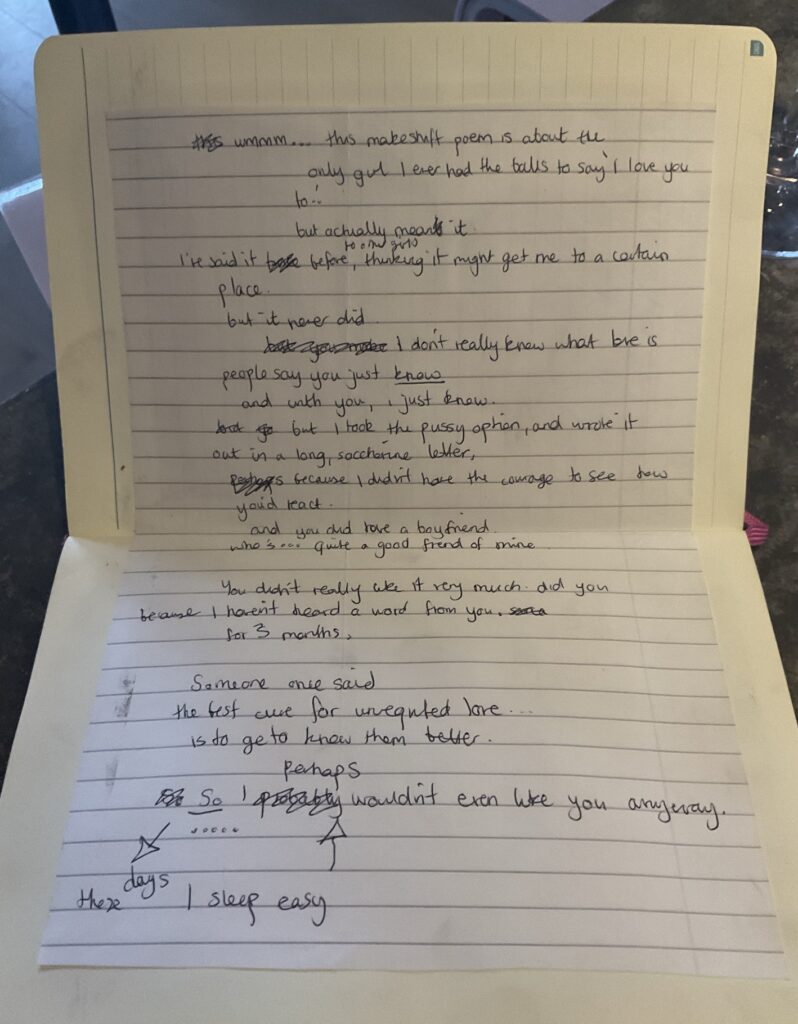 ummm... this makeshift poem is about the
only girl I ever had the balls to say 'I love you
to..'
but actually meant it.
to other girls
I've said it before, thinking it might get me to a certain
place.
but it never did
but you make I don't really know what love is
people say you just know
and with you, i just knew.
but I took the pussy option, and wrote it
out in a long, saccharine letter,
Perhaps because I didn't have the courage to see how
you'd react.
and you did have a boyfriend.
who's... quite a good friend of mine
You didn't really like it very much. did you
because I haven't heard a word from you.
for 3 months.
Someone once said
the best cure for unrequited love...
is to get to know them better.
perhaps
So I probably wouldn't even like you anyway.
.....
days
these I sleep easy